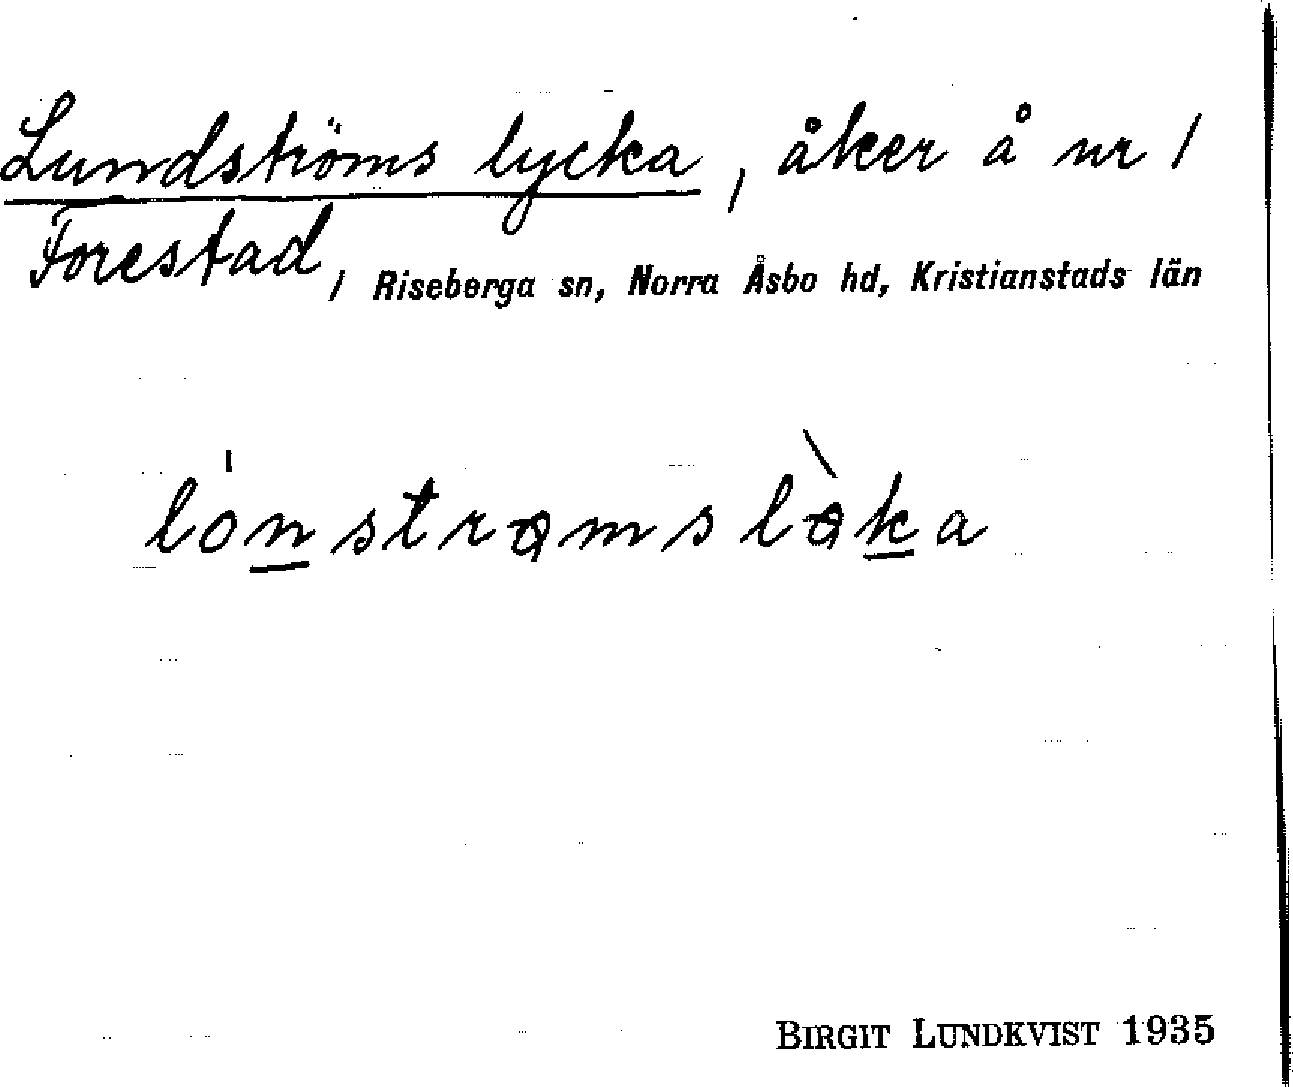 Lundströms lycka, åker å nr 1
Forestad, Riseberga sn, Norra Åsbo hd, Kristianstads län
BIRGIT LUNDKVIST 1935